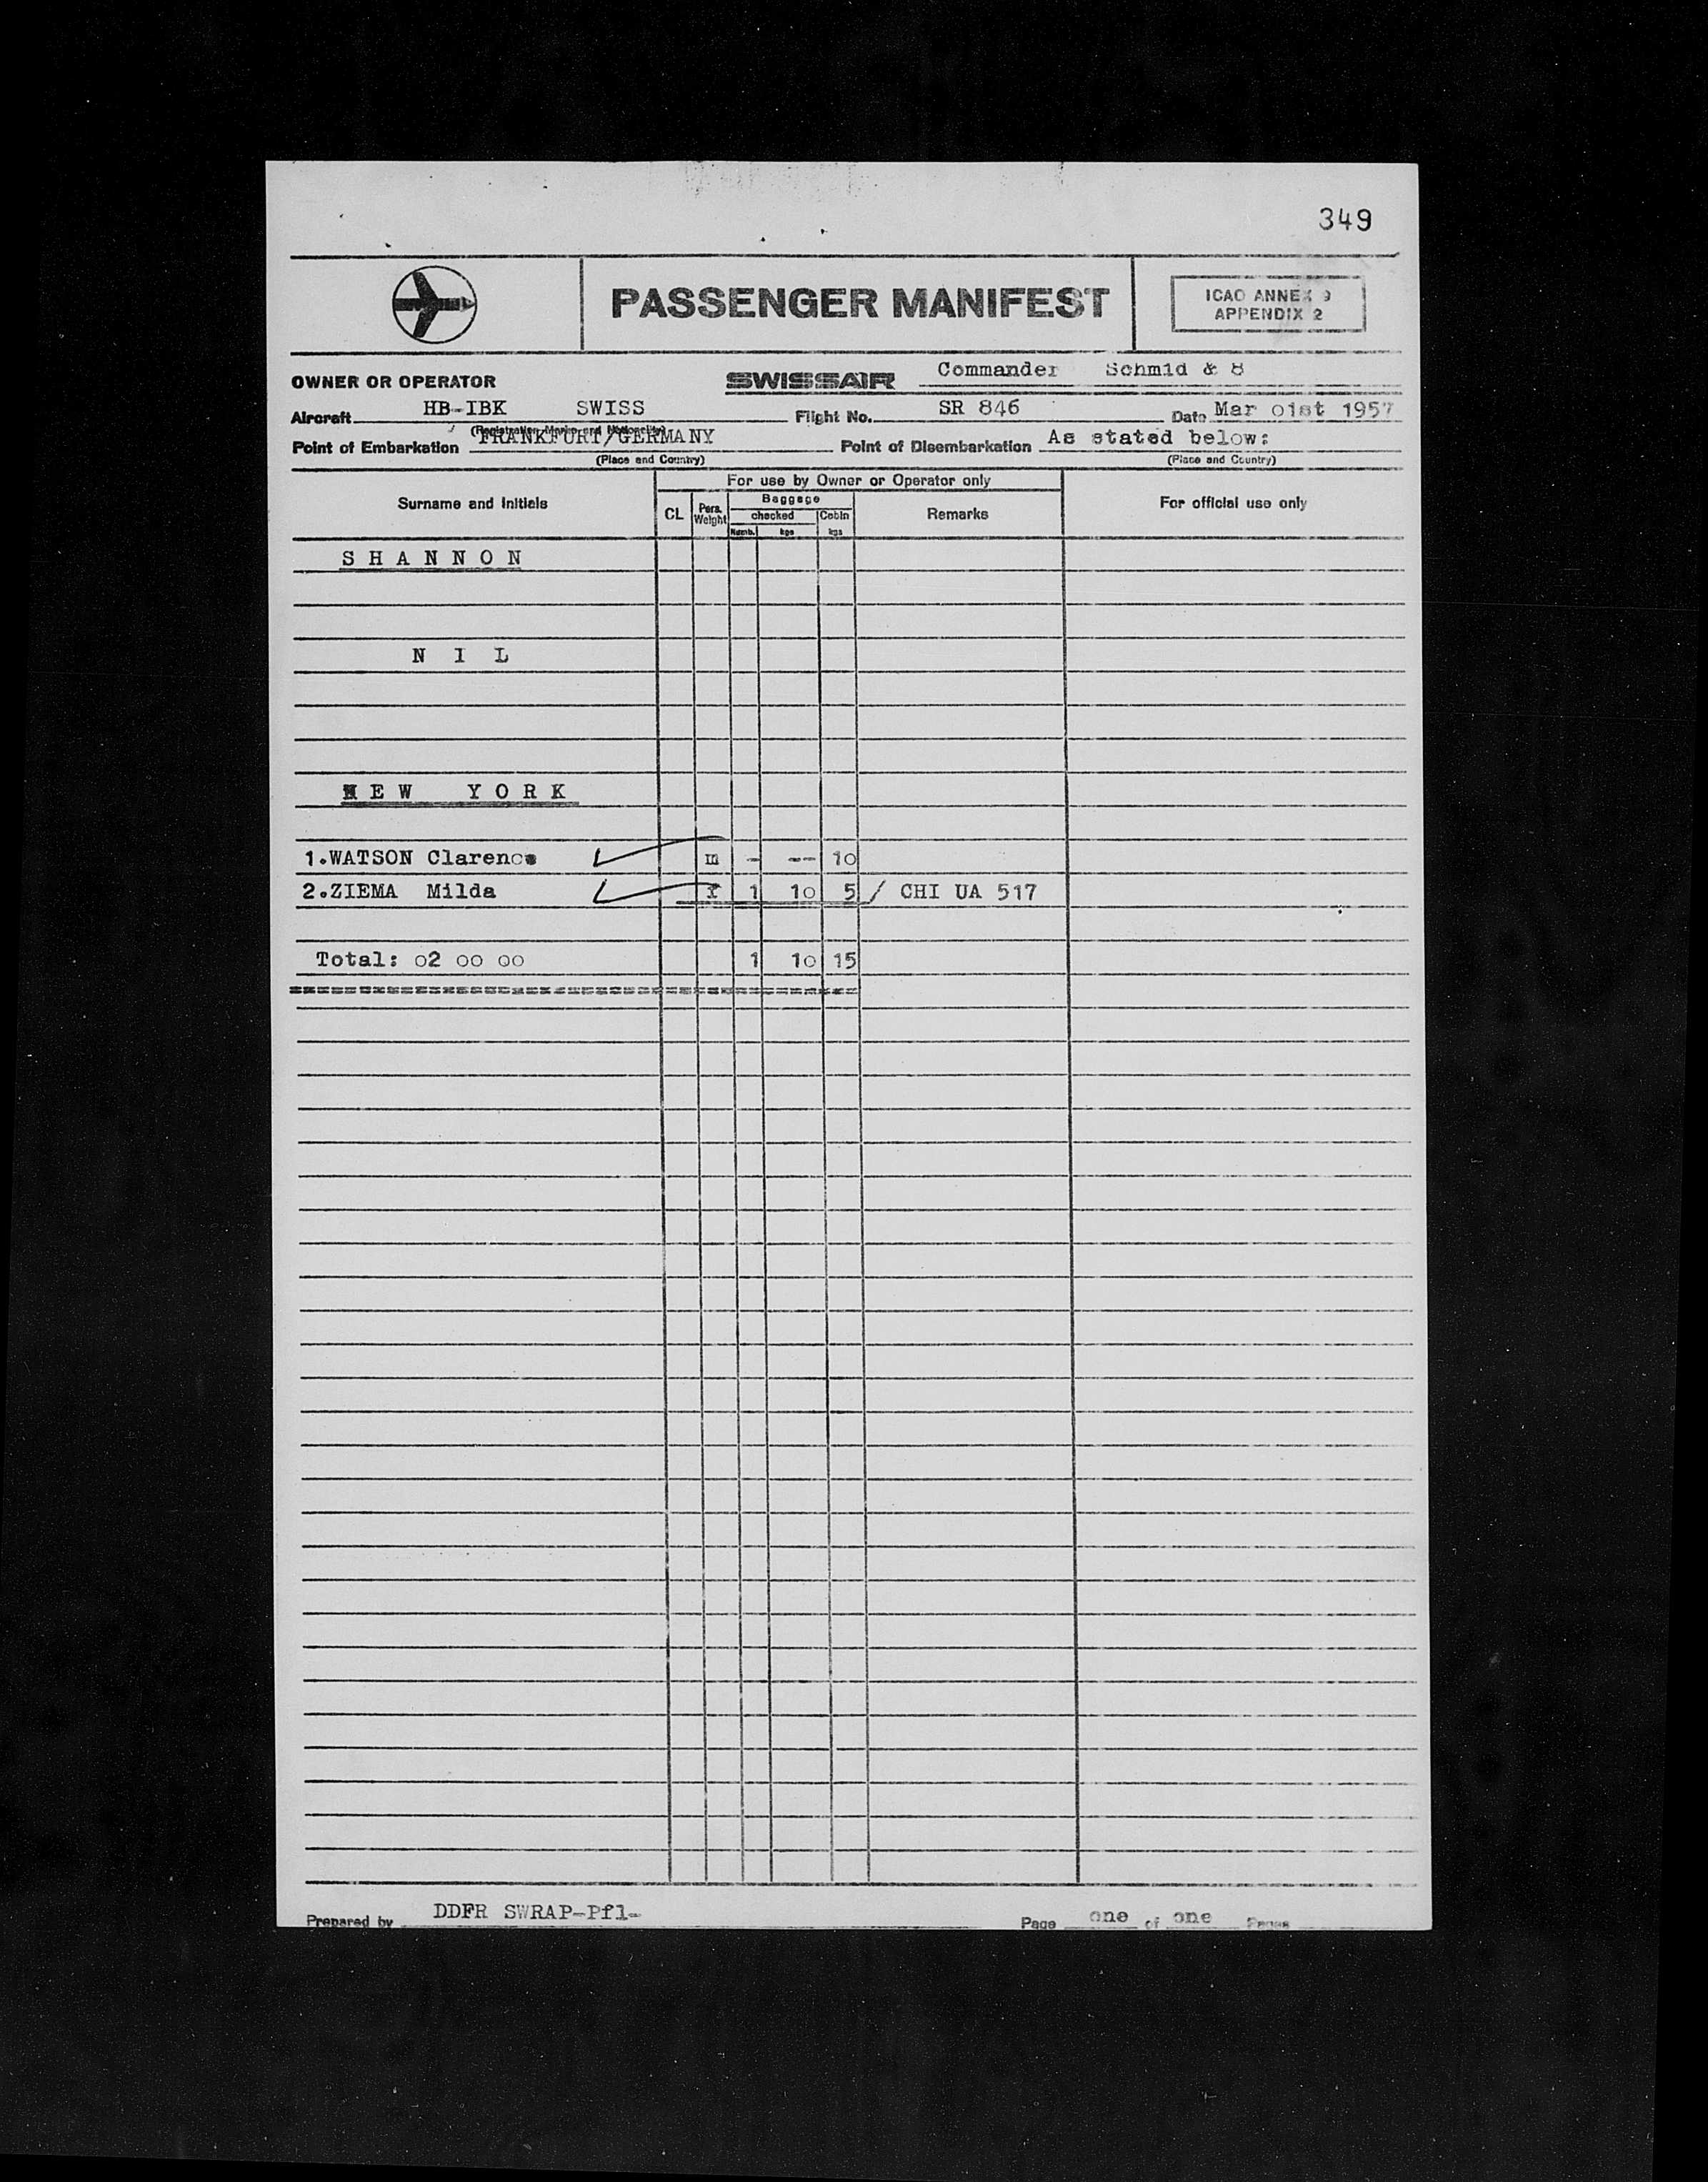 349
PASSENGER MANIFEST
ICAO ANNEX 9
APPENDIX 2
OWNER OR OPERATOR SWISSAIR Commander Schmid & 8
Aircraft HB-IBK SWISS Flight No. SR 846 Date Mar o1st 1957
(Registration Marks and Nationality)
Point of Embarkation FRANKFURT/GERMANY Point of Disembarkation As stated below:
(Place and Country) (Place and Country)
Surname and Initials
For use by Owner or Operator only
CL
Pers. Weight
Baggage
checked
Cabin
Numb. kgs kgs
Remarks
For official use only
S H A N N O N
N I L
N E W Y O R K
1.WATSON Clarence m - -- 1o
2.ZIEMA Milda f 1 1o 5 / CHI UA 517
Total: o2 oo oo 1 1o 15
=========================================
Prepared by DDFR SWRAP-Pfl- Page one of one Pages